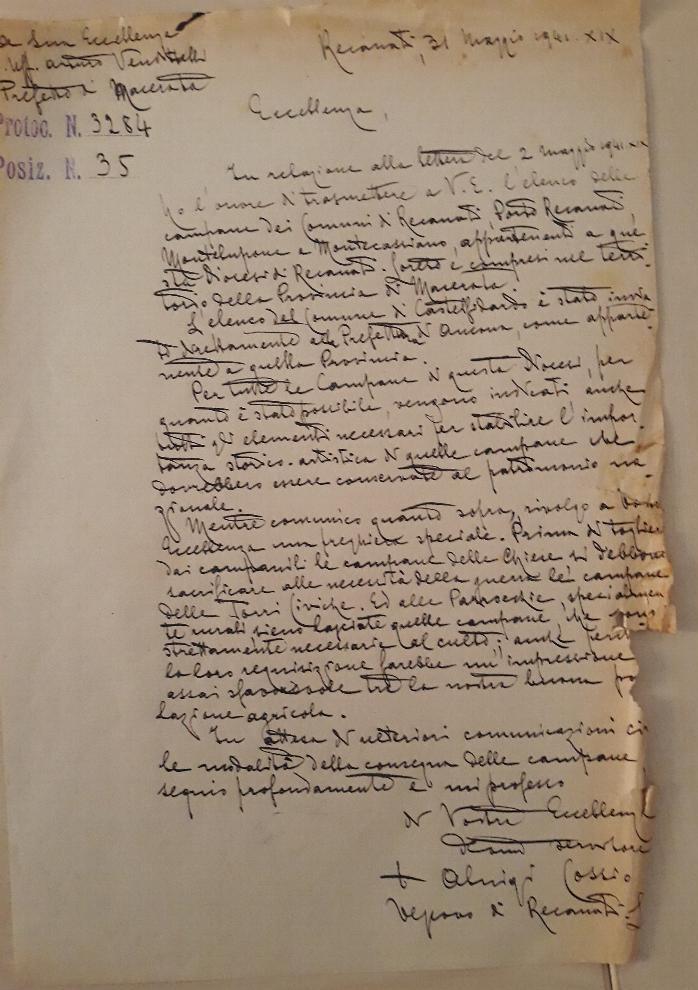 a Sua Eccellenza
Uff. Arturo Venditelli
Prefetto di Macerata
Recanati, 31 Maggio 1941. XIX
Protoc. N. 3284
Posiz. N. 35
Eccellenza,
In relazione alla lettera del 2 maggio 1941. XIX
ho l'onore di trasmettere a V. E. l'elenco delle
campane dei Comuni di Recanati, Porto Recanati
Montelupone e Montecassiano, appartenenti a que
sta Diocesi di Recanati-Loreto e compresi nel terri-
torio della Provincia di Macerata.
L'elenco del Comune di Castelfidardo è stato invia
to direttamente alla Prefettura di Ancona, come apparte-
nente a quella Provincia.
Per tutte le Campane di questa Diocesi, per
quanto è stato possibile, vengono indicati anche
tutti gli elementi necessari per stabilire l'impor-
tanza storico-artistica di quelle campane che
dovrebbero essere conservate al patrimonio na-
zionale.
Mentre comunico quanto sopra, rivolgo a
Eccellenza una preghiera speciale. Prima di toglier
dai campanili le campane delle Chiese si debbono
sacrificare alle necessità della guerra le campane
delle Torri Civiche. Ed alle Parrocchie, specialmen
te rurali sieno lasciate quelle campane, che sono
strettamente necessarie al culto; anche perchè
la loro requisizione farebbe un'impressione
assai sfavorevole tra la nostra buona po
lazione agricola.
In attesa di ulteriori comunicazioni ci
le modalità della consegna delle campane
seguio profondamente e mi professo
di Vostra Eccellenza
devmo servitore
+ Aluigi Cossio
Vescovo di Recanati-L